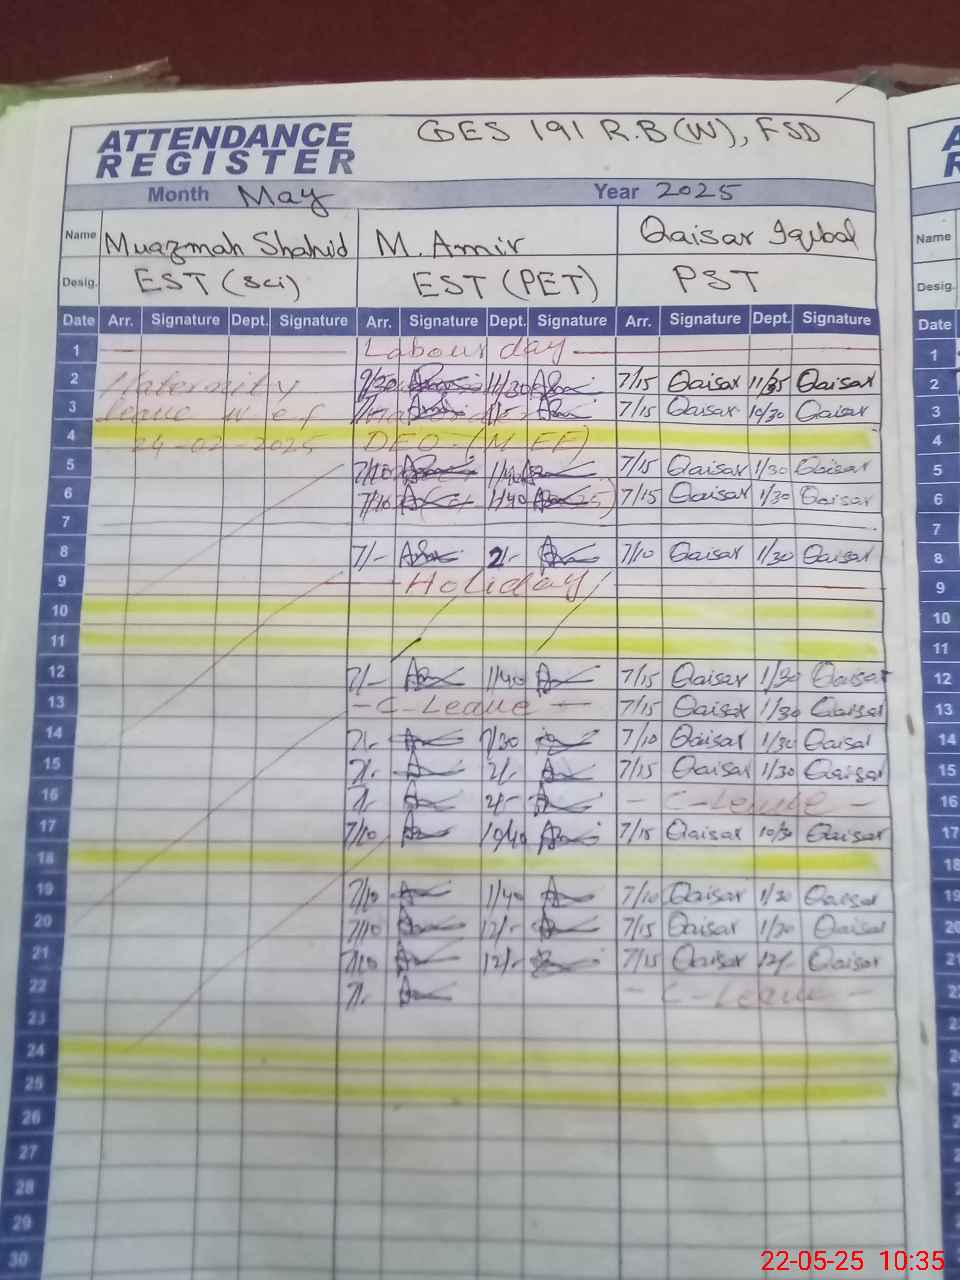 ATTENDANCE REGISTER GES 191 R.B(W), FSD
Month May Year 2025
Name Muazmah Shahid M. Amir Qaisar Iqbal Name
Desig. EST (sci) EST (PET) PST Desig.
Date Arr. Signature Dept. Signature Arr. Signature Dept. Signature Arr. Signature Dept. Signature Date
1 Labour day 1
2 Maternity 7/15 Qaisar Qaisar 2
3 leave w.e.f 7/15 Qaisar 10/30 Qaisar 3
4 24-02-2025 DEO-(M-EE) 4
5 7/10 1/40 7/15 Qaisar 1/30 Qaisar 5
6 7/10 1/40 7/15 Qaisar 1/30 Qaisar 6
7 7
8 7/- 2/- 7/10 Qaisar 1/30 Qaisar 8
9 Holiday 9
10 10
11 11
12 7/- 1/40 7/15 Qaisar 1/30 Qaisar 12
13 -C-Leave- 7/15 Qaisar 1/30 Qaisar 13
14 7/- 7/10 Qaisar 1/30 Qaisar 14
15 7/- 2/- 7/15 Qaisar 1/30 Qaisar 15
16 7/- 2/- - C-Leave - 16
17 7/10 10/40 7/15 Qaisar 10/30 Qaisar 17
18 18
19 7/10 1/40 7/10 Qaisar 1/30 Qaisar 19
20 7/10 12/- 7/15 Qaisar 1/30 Qaisar 20
21 7/10 12/- 7/15 Qaisar 12/- Qaisar 21
22 7/- - C-Leave - 22
23
24
25
26
27
28
29
30
22-05-25 10:35